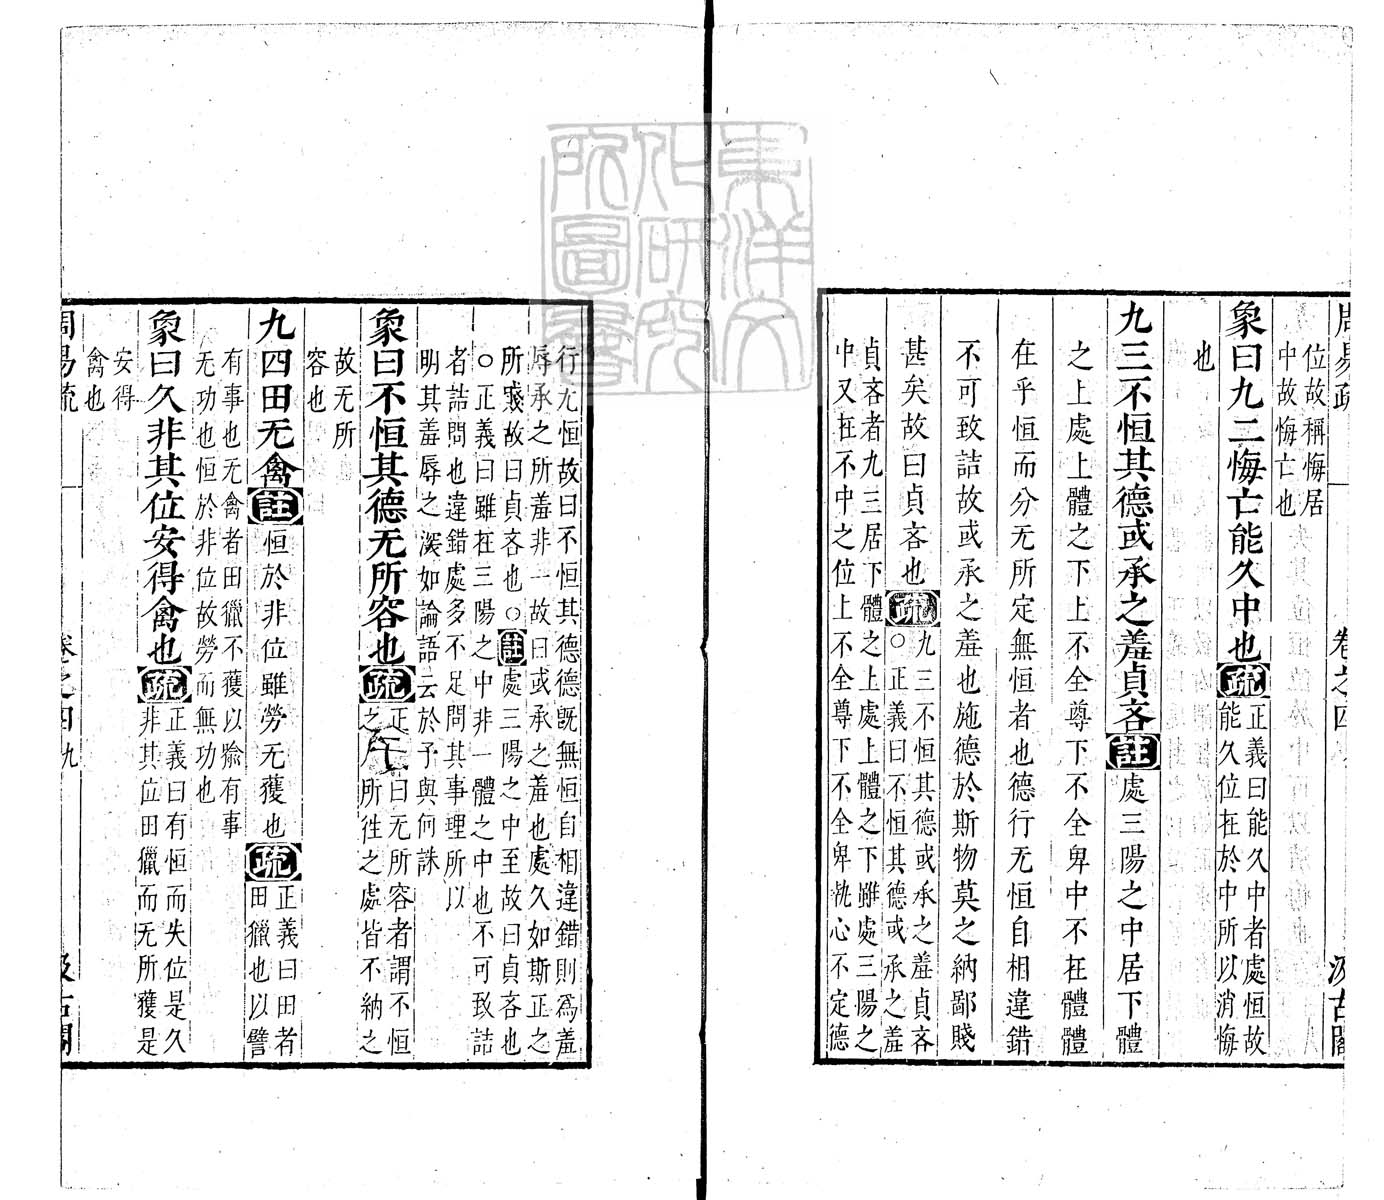 周易疏
卷之四
汲古閣
位故稱悔居
中故悔亡也
象曰九二悔亡能久中也疏正義曰能久中者處恒故
能久位在於中所以消悔
也
九三不恒其德或承之羞貞吝註處三陽之中居下體
之上處上體之下上不全尊下不全卑中不在體體
在乎恒而分无所定無恒者也德行无恒自相違錯
不可致詰故或承之羞也施德於斯物莫之納鄙賤
甚矣故曰貞吝也疏九三不恒其德或承之羞貞吝
○正義曰不恒其德或承之羞
貞吝者九三居下體之上處上體之下雖處三陽之
中又在不中之位上不全尊下不全卑執心不定德
行无恒故曰不恒其德德旣無恒自相違錯則為羞
辱承之所羞非一故曰或承之羞也處久如斯正之
所賤故曰貞吝也○註處三陽之中至故曰貞吝也
○正義曰雖在三陽之中非一體之中也不可致詰
者詰問也違錯處多不足問其事理所以
明其羞辱之深如論語云於予與何誅
象曰不恒其德无所容也疏正義曰无所容者謂不恒
之人所徃之處皆不納之
故无所
容也
九四田无禽註恒於非位雖勞无獲也疏正義曰田者
田獵也以譬
有事也无禽者田獵不獲以喻有事
无功也恒於非位故勞而無功也
象曰久非其位安得禽也疏正義曰有恒而失位是久
非其位田獵而无所獲是
安得
禽也
周易疏
卷之四
九
汲古閣
東洋文
化研究
所圖書